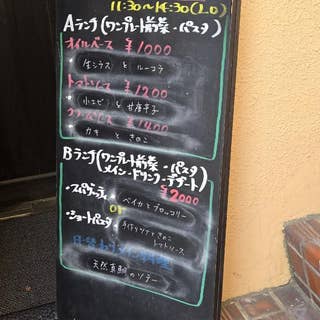 11:30〜14:30(L.O)
Aランチ(ワンプレート前菜・パスタ)
オイルベース ¥1000
生シラス & ルーコラ
トマトソース ¥1200
小エビ & 甘唐辛子
¥1400
カキ と きのこ
Bランチ(ワンプレート前菜・パスタ
メイン・ドリンク・デザート)
¥2000
・スパゲッティ
ベイカとブロッコリー
or
・ショートパスタ
手作りツナときのこ
トマトソース
天然真鯛のソテー